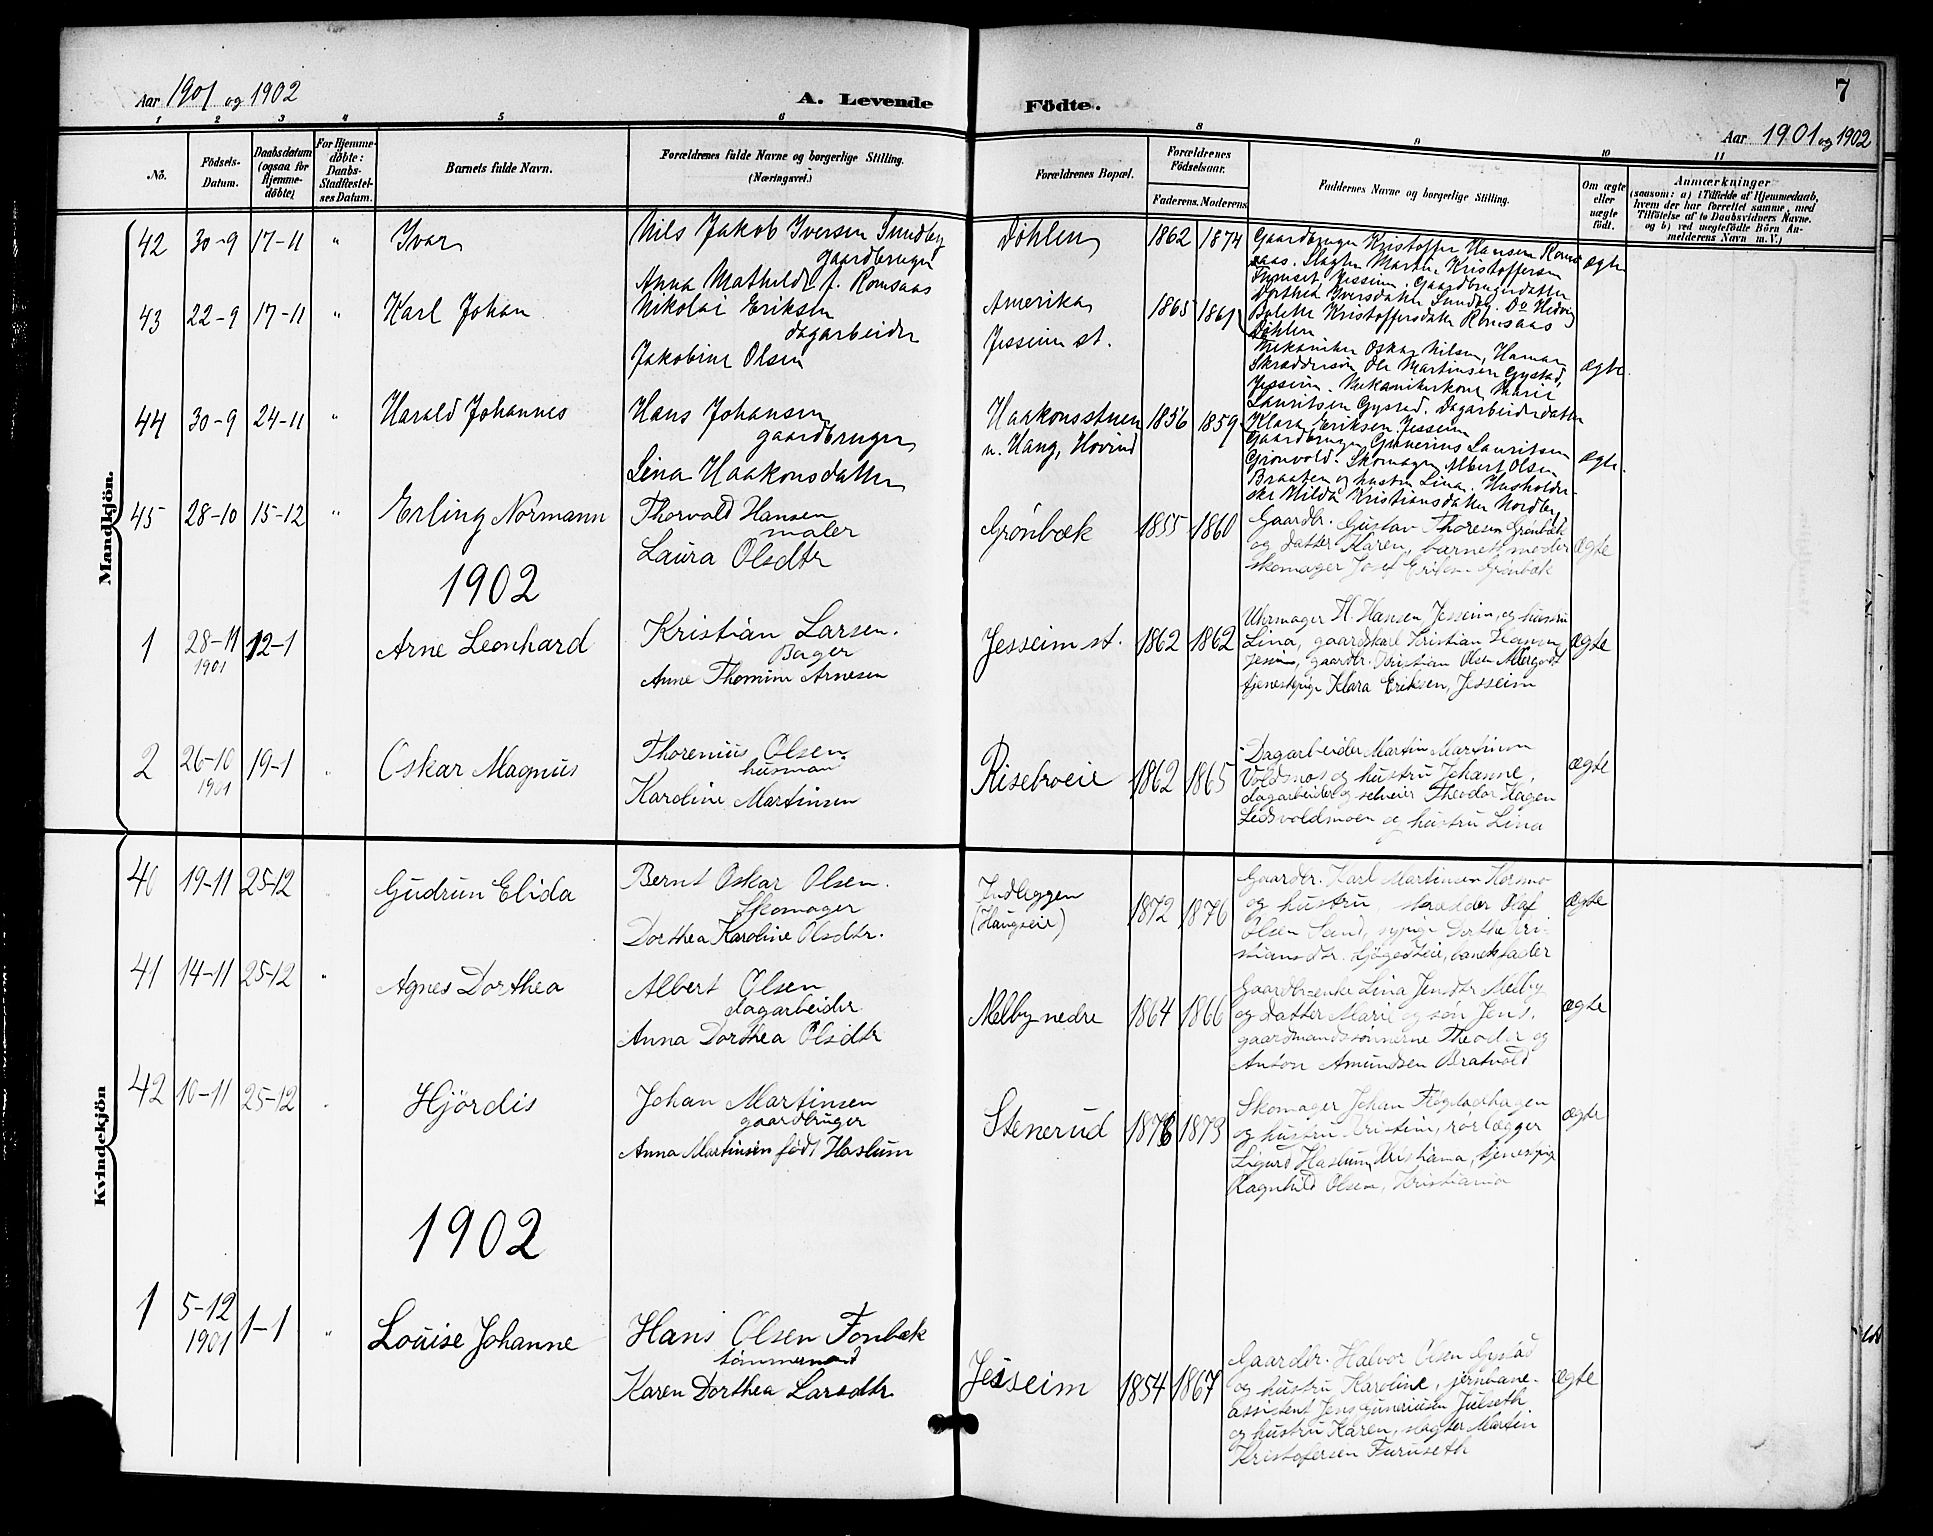 Aar 1901 og 1902
A. Levende Födte.
7
Aar 1901 og 1902
1 2 3 4 5 6 8 9 10 11
No.
Födsels-Datum.
Daabsdatum (ogsaa for Hjemme-döbte)
For Hjemme-döbte: Daabs-Stadfæstel-ses Datum.
Barnets fulde Navn.
Forældrenes fulde Navne og borgerlige Stilling.
(Næringsvei.)
Forældrenes Bopæl.
Forældrenes Födselsaar.
Faderens. Moderens.
Faddernes Navne og borgerlige Stilling.
Om ægte eller uægte födt.
Anmærkninger
(saasom: a) i Tilfælde af Hjemmedaab,
hvem der har forrettet samme, med
Tilföielse af to Daabsvidners Navne.
og b) ved uægtefödte Börn An-
melderens Navn m. V.)
Mandkjön.
42 30-9 17-11 " Ivar
Nils Jakob Iversen Sundby
gaardbruger
Anna Mathilde f. Romsaas
Döhlen 1862 1874
Gaardbruger Kristoffer Hansen Roms-
aas. Slagter Martin Kristoffersen
Furuset, Jesseim. Gaardbrugerdatter
Dorthea Iversdatter Sundby. Do Hedvig
Bolette Kristoffersdatter Romsaas
Döhlen
ægte
43 22-9 17-11 " Karl Johan
Nikolai Eriksen
dagarbeider
Jakobine Olsen
Amerika
Jesseim st.
1865 1861
Mekaniker Oskar Nilsen, Hamar
Skræddersön Ole Martinsen Gystad,
Jesseim. Mekanikerkone Marie
Lauritsen Gystad. Dagarbeiderdatter
Klara Eriksen Jesseim
ægte.
44 30-9 24-11 " Harald Johannes
Hans Johansen
gaardbruger
Lina Haakonsdatter
Haakonsstuen
u. Haug, Hovind
1856 1859
Gaardbruger Gunerius Lauritsen
Grönvold. Skomager Albert Olsen
Braaten og hustru Lina. Husholder-
ske Hilda Kristiansdatter Nordby
ægte.
45 28-10 15-12 " Erling Normann
Thorvald Hansen
maler
Laura Olsdtr
Grönbæk 1855 1860
Gaardbr. Gustav Thoresen Grönbæk
og datter Karen, barnets moder
skomager Josef Eriksen Grönbæk
ægte
1902
1 28-11 1901 12-1 Arne Leonhard
Kristian Larsen.
Bager
Anne Thomine Arnesen
Jesseim st. 1862 1862
Uhrmager H. Hansen Jesseim, og hustru
Lina, gaardkarl Kristian Hansen
Jessm, gaardbr. Kristian Olsen
tjenestepige Klara Eriksen, Jesseim
ægte
2 26-10 1901 19-1 " Oskar Magnus
Thorenius Olsen
husmand
Karoline Martinsen
Risebroeie 1862 1865
Dagarbeider Martin Martinsen
Voldmos og hustru Johanne,
dagarbeider og selveier Theodor Hagen
Ledsvoldmoen og hustru Lina
ægte
Kvindekjön
40 19-11 25-12 Gudrun Elida
Bernt Oskar Olsen.
Skomager
Dorthea Karoline Olsdtr.
Indleggen
(Haugseie)
1872 1876
Gaardbr. Karl Martinsen Hormo
og hustru, skrædder Olaf
Olsen Sand, sypige Dorthe Kri-
stiansdtr. barnets fader
ægte
41 14-11 25-12 " Agnes Dorthea
Albert Olsen
dagarbeider
Anna Dorthea Olsdtr
Melby nedre 1864 1866
Gaardbr.enke Lina Jensdtr Melby
og datter Marie og sön Jens,
gaardmandssönnerne Theodor og
Anton Amundsen Bratvold
ægte
42 10-11 25-12 Hjördis
Johan Martinsen
gaardbruger
Anna Martinsen födt Haslum
Stenerud 1876 1873
Skomager Johan
og hustru Kristine, rörlægger
Sigurd Haslum, Kristiania, tjenestpige
Ragnhild Olsen, Kristiania
ægte
1902
1 5-12 1901 1-1 " Louise Johanne
Hans Olsen Fonbæk
tömmermand
Karen Dorthea Larsdtr
Jesseim 1854 1867
Gaardbr. Halvor Olsen Gystad
og hustru Karoline, jernbane-
assistent Jens Guneriusen Julseth
og hustru Karen, slagter Martin
Kristofersen Furuseth
ægte